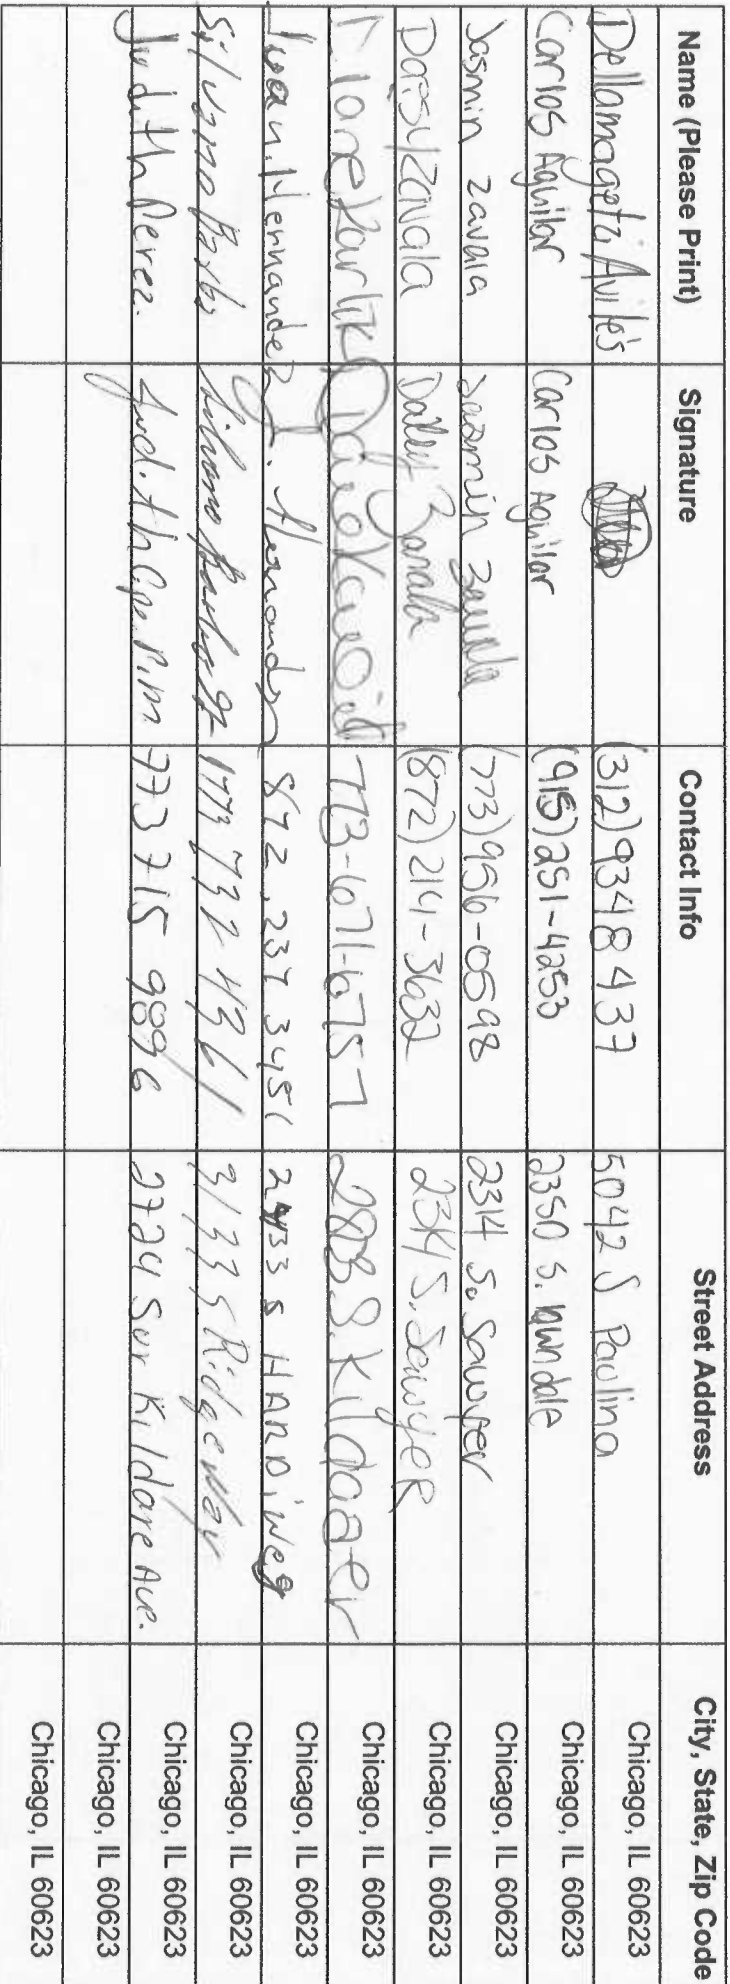 Name (Please Print) Signature Contact Info Street Address City, State, Zip Code
Avilés (312)9348437 5042 S Paulina Chicago, IL 60623
Carlos Aguilar Carlos Aguilar (915)251-4253 2350 S. Chicago, IL 60623
Jasmin Zavala Jasmin Zavala (773)956-0598 2314 So Sawyer Chicago, IL 60623
Daisy Zavala Zavala (872)214-3632 2314 S. Sawyer Chicago, IL 60623
773-671-6757 S. Kildaaer Chicago, IL 60623
Juan. Hernandez J. Hernandez 872.237 3451 S Chicago, IL 60623
Silvano 1773 732 4361 3133 S Ridgeway Chicago, IL 60623
Judith Perez. Judith 773 715 9896 2724 Sur Kildare Ave. Chicago, IL 60623
Chicago, IL 60623
Chicago, IL 60623